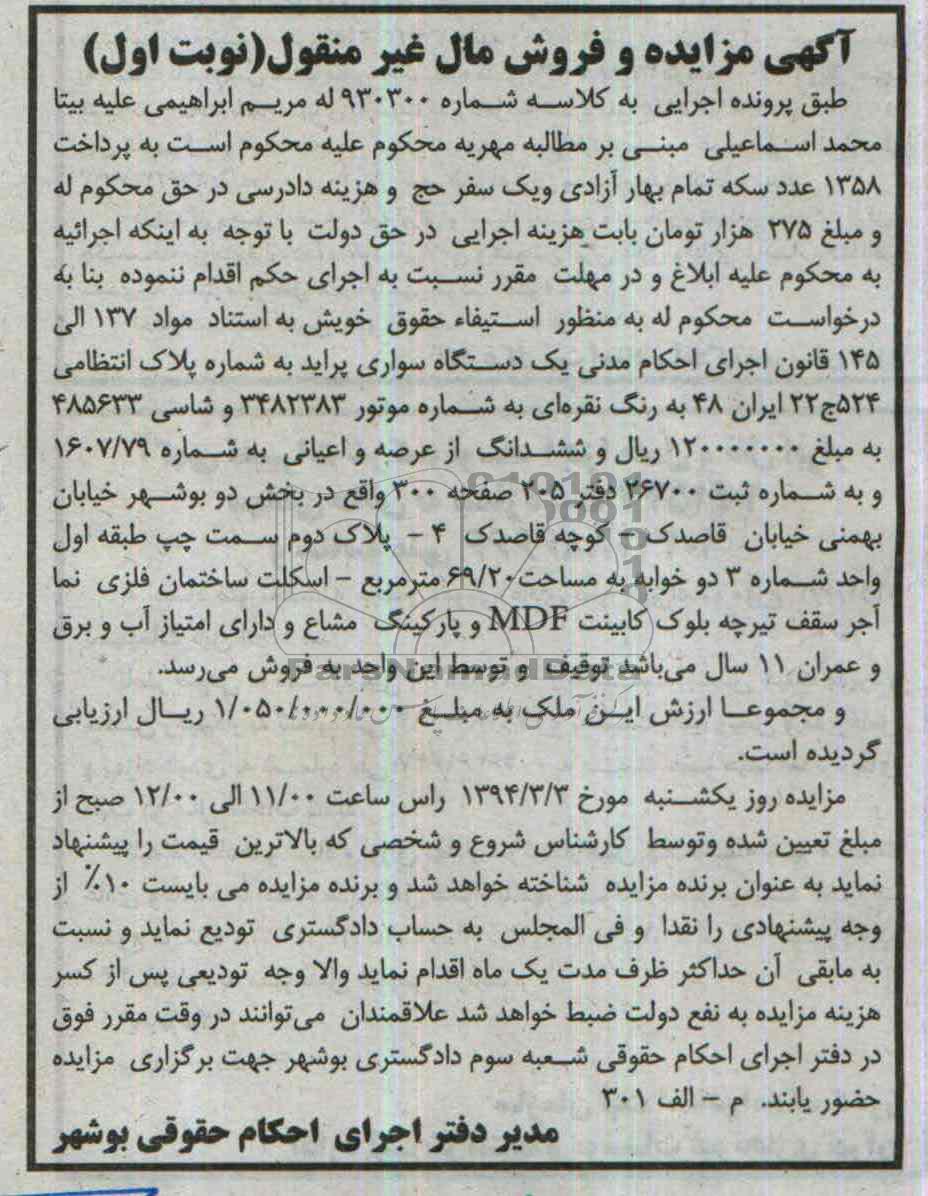 آگهی مزایده و فروش مال غیر منقول(نوبت اول)
طبق پرونده اجرایی به کلاسه شماره ۹۳۰۳۰۰ له مریم ابراهیمی علیه بیتا
محمد اسماعیلی مبنی بر مطالبه مهریه محکوم علیه محکوم است به پرداخت
۱۳۵۸ عدد سکه تمام بهار آزادی ویک سفر حج و هزینه دادرسی در حق محکوم له
و مبلغ ۲۷۵ هزار تومان بابت هزینه اجرایی در حق دولت با توجه به اینکه اجرائیه
به محکوم علیه ابلاغ و در مهلت مقرر نسبت به اجرای حکم اقدام ننموده بنا به
درخواست محکوم له به منظور استیفاء حقوق خویش به استناد مواد ۱۳۷ الی
۱۴۵ قانون اجرای احکام مدنی یک دستگاه سواری پراید به شماره پلاک انتظامی
۵۲۴ج۲۲ ایران ۴۸ به رنگ نقره‌ای به شماره موتور ۳۴۸۲۳۸۳ و شاسی ۴۸۵۶۳۳
به مبلغ ۱۲۰۰۰۰۰۰۰ ریال و ششدانگ از عرصه و اعیانی به شماره ۱۶۰۷/۷۹
و به شماره ثبت ۲۶۷۰۰ دفتر ۲۰۵ صفحه ۳۰۰ واقع در بخش دو بوشهر خیابان
بهمنی خیابان قاصدک - کوچه قاصدک ۴ - پلاک دوم سمت چپ طبقه اول
واحد شماره ۳ دو خوابه به مساحت ۶۹/۲۰ مترمربع - اسکلت ساختمان فلزی نما
آجر سقف تیرچه بلوک کابینت MDF و پارکینگ مشاع و دارای امتیاز آب و برق
و عمران ۱۱ سال می‌باشد توقیف و توسط این واحد به فروش می‌رسد.
ParsNamadData
و مجموعا ارزش این ملک به مبلغ ۱/۰۵۰/۰۰۰/۰۰۰ ریال ارزیابی
گردیده است.
مزایده روز یکشنبه مورخ ۱۳۹۴/۳/۳ راس ساعت ۱۱/۰۰ الی ۱۲/۰۰ صبح از
مبلغ تعیین شده وتوسط کارشناس شروع و شخصی که بالاترین قیمت را پیشنهاد
نماید به عنوان برنده مزایده شناخته خواهد شد و برنده مزایده می بایست ۱۰٪ از
وجه پیشنهادی را نقدا و فی المجلس به حساب دادگستری تودیع نماید و نسبت
به مابقی آن حداکثر ظرف مدت یک ماه اقدام نماید والا وجه تودیعی پس از کسر
هزینه مزایده به نفع دولت ضبط خواهد شد علاقمندان می‌توانند در وقت مقرر فوق
در دفتر اجرای احکام حقوقی شعبه سوم دادگستری بوشهر جهت برگزاری مزایده
حضور یابند. م - الف ۳۰۱
مدیر دفتر اجرای احکام حقوقی بوشهر